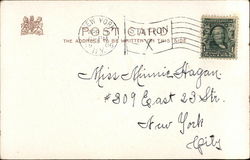 NEW YORK
STATION
POST CARD
THE ADDRESS TO BE WRITTEN ON THIS SIDE
Miss Minnie Hagan
#309 East 23 Str.
New York
City